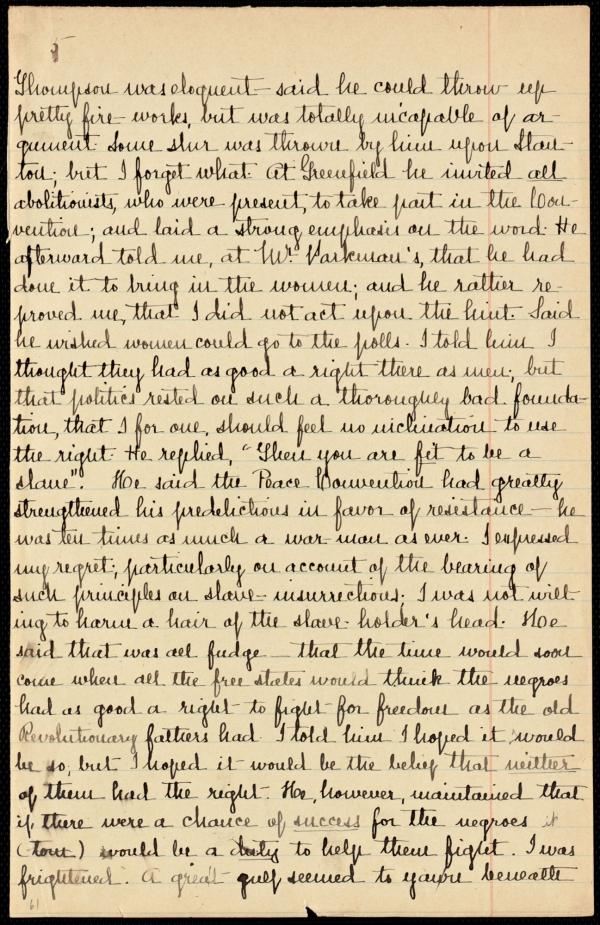 5
Thompson was eloquent – said he could throw up
pretty fire-works, but was totally incapable of ar-
gument. Some slur was thrown by him upon Stan-
ton; but I forget what. At Greenfield he invited all
abolitionists, who were present, to take part in the Con-
vention; and laid a strong emphasis on the word. He
afterward told me, at Mr. Parkman's, that he had
done it to bring in the women; and he rather re-
proved me, that I did not act upon the hint. Said
he wished women could go to the polls. I told him I
thought they had as good a right there as men; but
that politics rested on such a thoroughly bad founda-
tion, that I for one, should feel no inclination to use
the right. He replied, "Then you are fit to be a
slave". He said the Peace Convention had greatly
strengthened his predelictions in favor of resistance – he
was ten times as much a war-man as ever. I expressed
my regret; particularly on account of the bearing of
such principles on slave-insurrections; I was not will-
ing to harm a hair of the slave-holder's head. He
said that was all fudge – that the time would soon
come when all the free states would think the negroes
had as good a right to fight for freedom as the old
Revolutionary fathers had. I told him I hoped it would
be so, but I hoped it would be the belief that neither
of them had the right. He, however, maintained that
if there were a chance of success for the negroes it
(tour) would be a duty to help them fight. I was
frightened. A great gulf seemed to yawn beneath
61